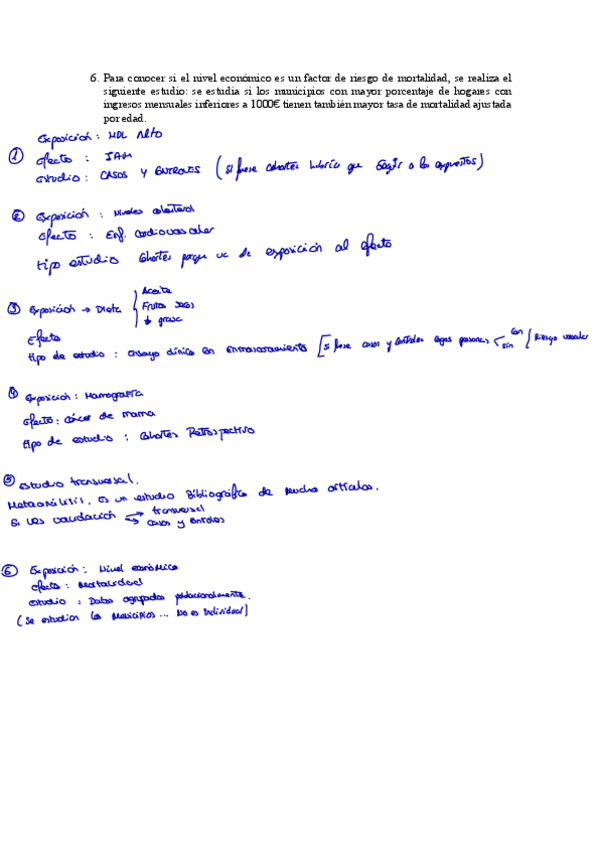 6. Para conocer si el nivel económico es un factor de riesgo de mortalidad, se realiza el
siguiente estudio: se estudia si los municipios con mayor porcentaje de hogares con
ingresos mensuales inferiores a 1000€ tienen también mayor tasa de mortalidad ajustada
por edad.
Exposición: HDL Alto
① efecto : IAM
estudio : CASOS Y CONTROLES (si fuese cohortes habría que seguir a los expuestos)
② Exposición : Niveles colesterol
Efecto : Enf. cardiovascular
tipo estudio Cohortes porque va de exposición al efecto
③ Exposición → Dieta { Aceite
Frutos secos
↓ grasa
Efecto
tipo de estudio : ensayo clínico en enmascaramiento [si fuese casos y controles personas < con
sin { Riesgo vascular
④ Exposición: Mamografía
efecto: cáncer de mama
tipo de estudio : Cohortes Retrospectivo
⑤ estudio transversal.
Metaanálisis. Es un estudio Bibliográfico de mucho artículos.
Si ves validación → transversal
→ casos y controles
⑥ Exposición : Nivel económico
efecto : Mortalidad
estudio : Datos agrupados poblacionalmente.
(Se estudian los Municipios ... No es individual)